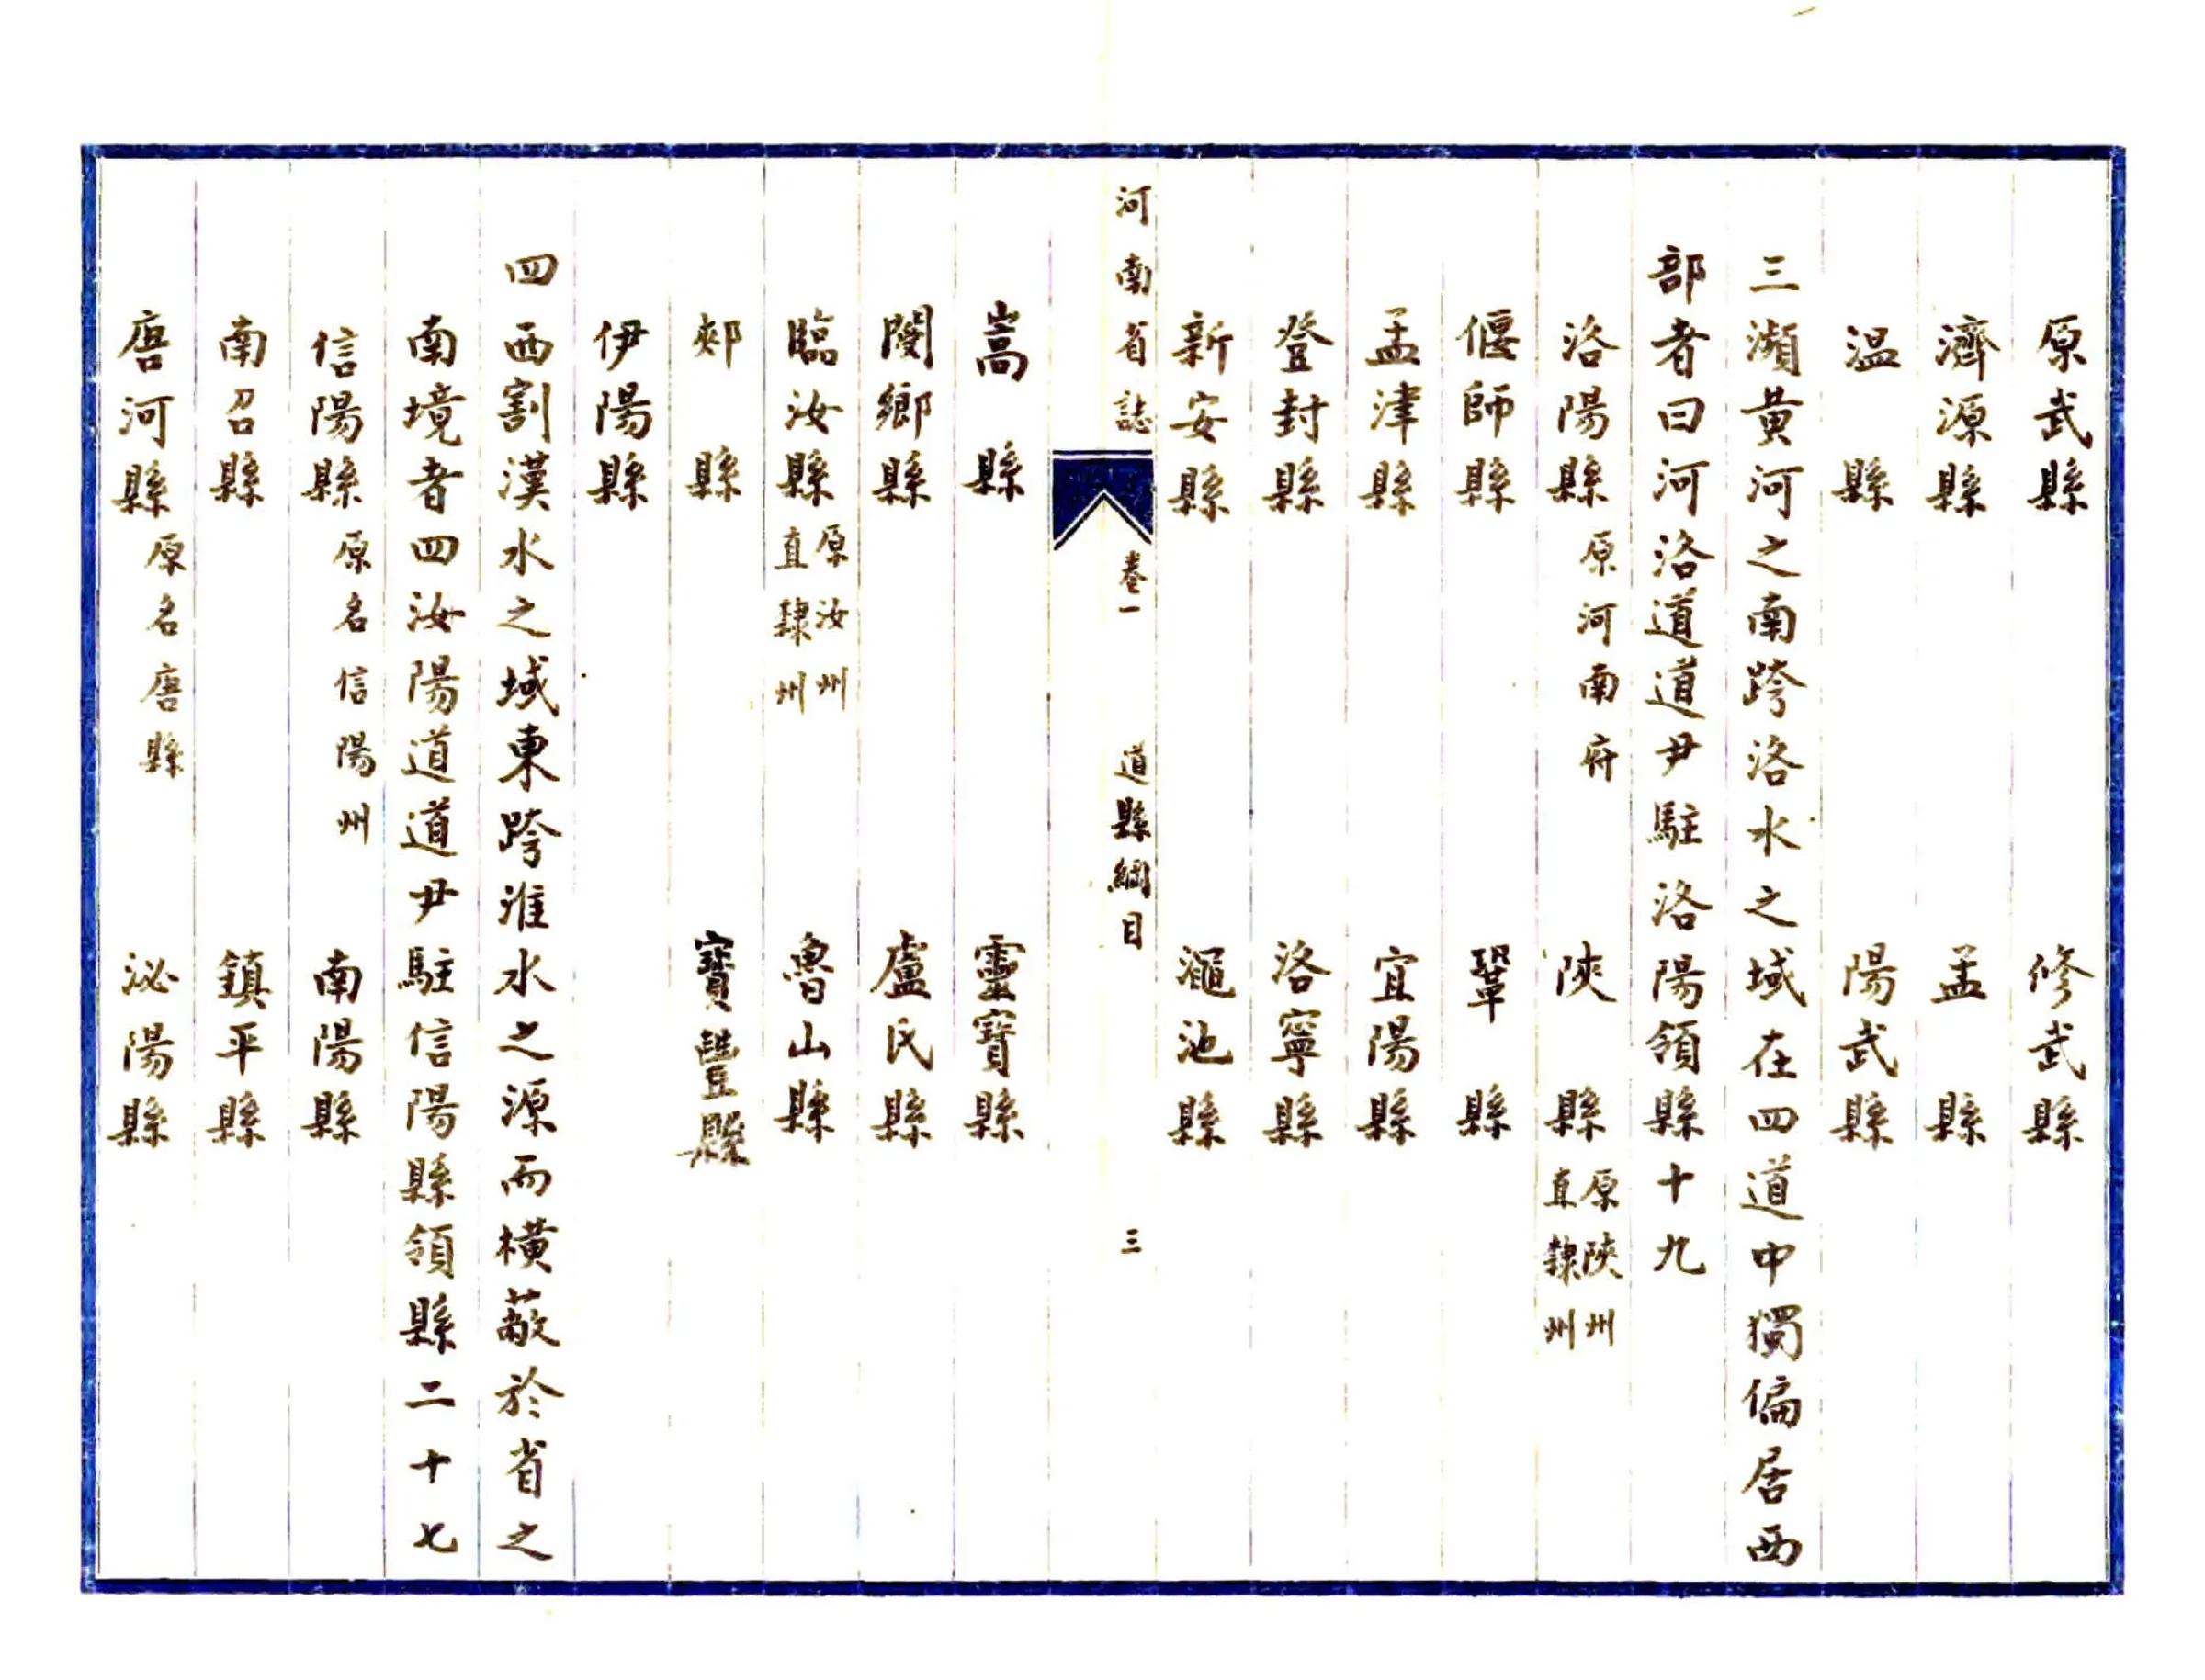 原武縣　修武縣
濟源縣　孟縣
温縣　陽武縣
三瀕黃河之南跨洛水之域在四道中獨偏居西
部者曰河洛道道尹駐洛陽領縣十九
洛陽縣原河南府　陝縣原陝州直隸州
偃師縣　鞏縣
孟津縣　宜陽縣
登封縣　洛寧縣
新安縣　澠池縣
河南省誌　卷一　道縣綱目　三
嵩縣　靈寶縣
閿鄉縣　盧氏縣
臨汝縣原汝州直隸州　魯山縣
郟縣　寶豐縣
伊陽縣
四西割漢水之域東跨淮水之源而橫蔽於省之
南境者四汝陽道道尹駐信陽縣領縣二十七
信陽縣原名信陽州　南陽縣
南召縣　鎮平縣
唐河縣原名唐縣　泌陽縣